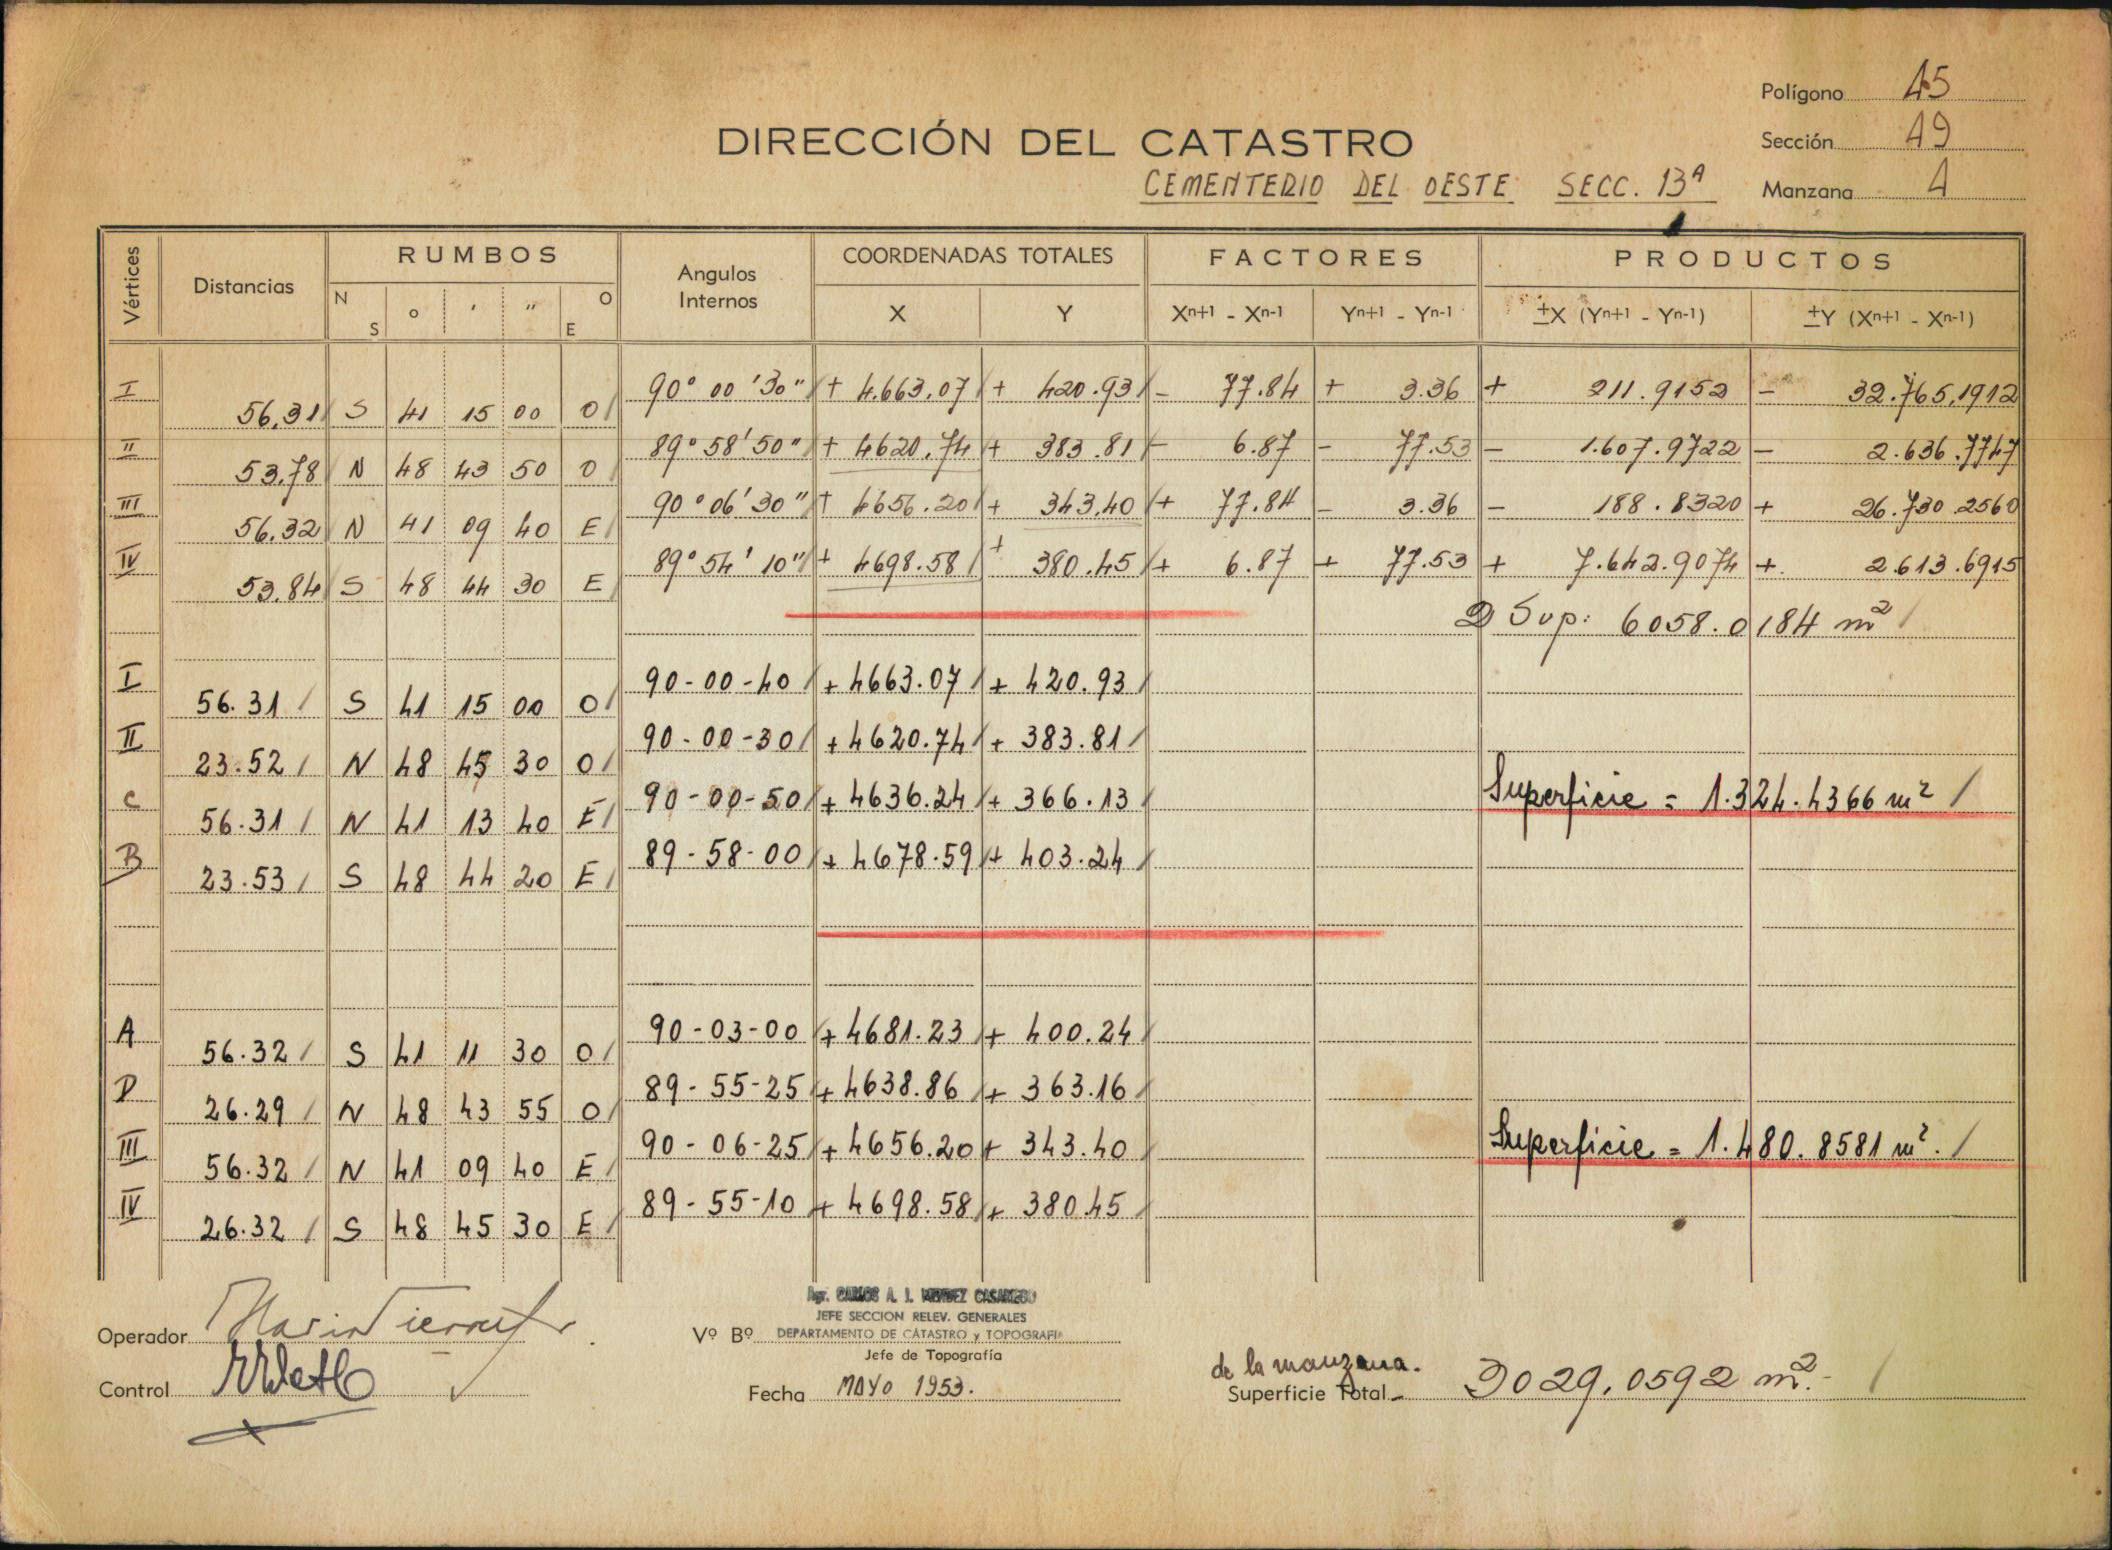 Polígono 45
DIRECCIÓN DEL CATASTRO
Sección 49
CEMENTERIO DEL OESTE SECC. 13A
Manzana A
Vértices Distancias RUMBOS Angulos Internos COORDENADAS TOTALES FACTORES PRODUCTOS
N S ° ' " O E X Y Xn+1 - Xn-1 Yn+1 - Yn-1 ±X (Yn+1 - Yn-1) ±Y (Xn+1 - Xn-1)
I 90° 00' 30" + 4.663.07 + 420.93 - 77.84 + 3.36 + 211.9152 - 32.765,1912
56.31 S 41 15 00 O
II 89° 58' 50" + 4620.74 + 383.81 - 6.87 - 77.53 - 1.607.9722 - 2.636.7747
53.78 N 48 43 50 O
III 90° 06' 30" + 4656.20 + 343.40 + 77.84 - 3.36 - 188.8320 + 26.730.2560
56.32 N 41 09 40 E
IV 89° 54' 10" + 4698.58 + 380.45 + 6.87 + 77.53 + 7.642.9074 + 2.613.6915
53.84 S 48 44 30 E
2 Sup: 6058.0184 m²
I 90-00-40 + 4663.07 + 420.93
56.31 S 41 15 00 O
II 90-00-30 + 4620.74 + 383.81
23.52 N 48 45 30 O
C 90-00-50 + 4636.24 + 366.13 Superficie = 1.324.4366 m²
56.31 N 41 13 40 E
B 89-58-00 + 4678.59 + 403.24
23.53 S 48 44 20 E
A 90-03-00 + 4681.23 + 400.24
56.32 S 41 11 30 O
D 89-55-25 + 4638.86 + 363.16
26.29 N 48 43 55 O
III 90-06-25 + 4656.20 + 343.40 Superficie = 1.480.8581 m².
56.32 N 41 09 40 E
IV 89-55-10 + 4698.58 + 380.45
26.32 S 48 45 30 E
Agr. CARLOS A. J. MENDEZ CASARIEGO
JEFE SECCION RELEV. GENERALES
Operador Vº Bº DEPARTAMENTO DE CATASTRO y TOPOGRAFIA
Jefe de Topografía
de la manzana.
Control Fecha MAYO 1953. Superficie Total 3029.0592 m².